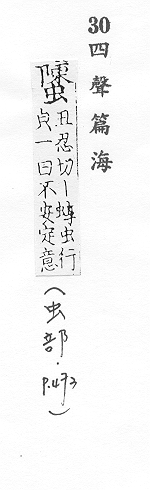 30 四聲篇海
丑忍切丨蜳虫行
一曰不安定意
(虫部.p.473)